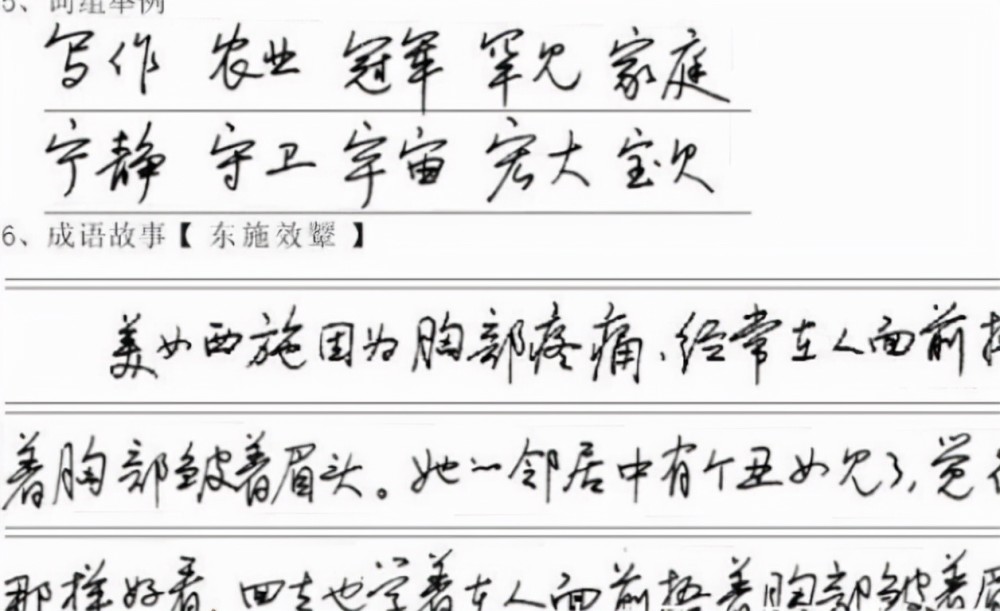 5、词组举例
写作 农业 冠军 罕见 家庭
宁静 守卫 宇宙 宏大 宝贝
6、成语故事【 东施效颦 】
美女西施因为胸部疼痛，经常在人面前按
着胸部皱着眉头。她的邻居中有个丑女见了，觉得
那样好看，回去也学着在人面前按着胸部皱着眉